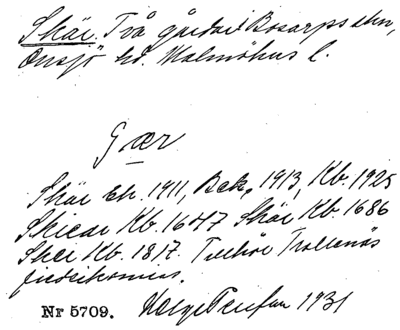 Skär. Två gårdar i Bosarps skn,
Onsjö hd. Malmöhus l.
Gær
Skär Ek. 1911, Bek, 1913, Kb. 1925
Skicar Kb. 1647 Skär Kb. 1686
Skei Kb. 1817. Tillhör Trollenäs
fideikomiss.
Nr 5709. 1931